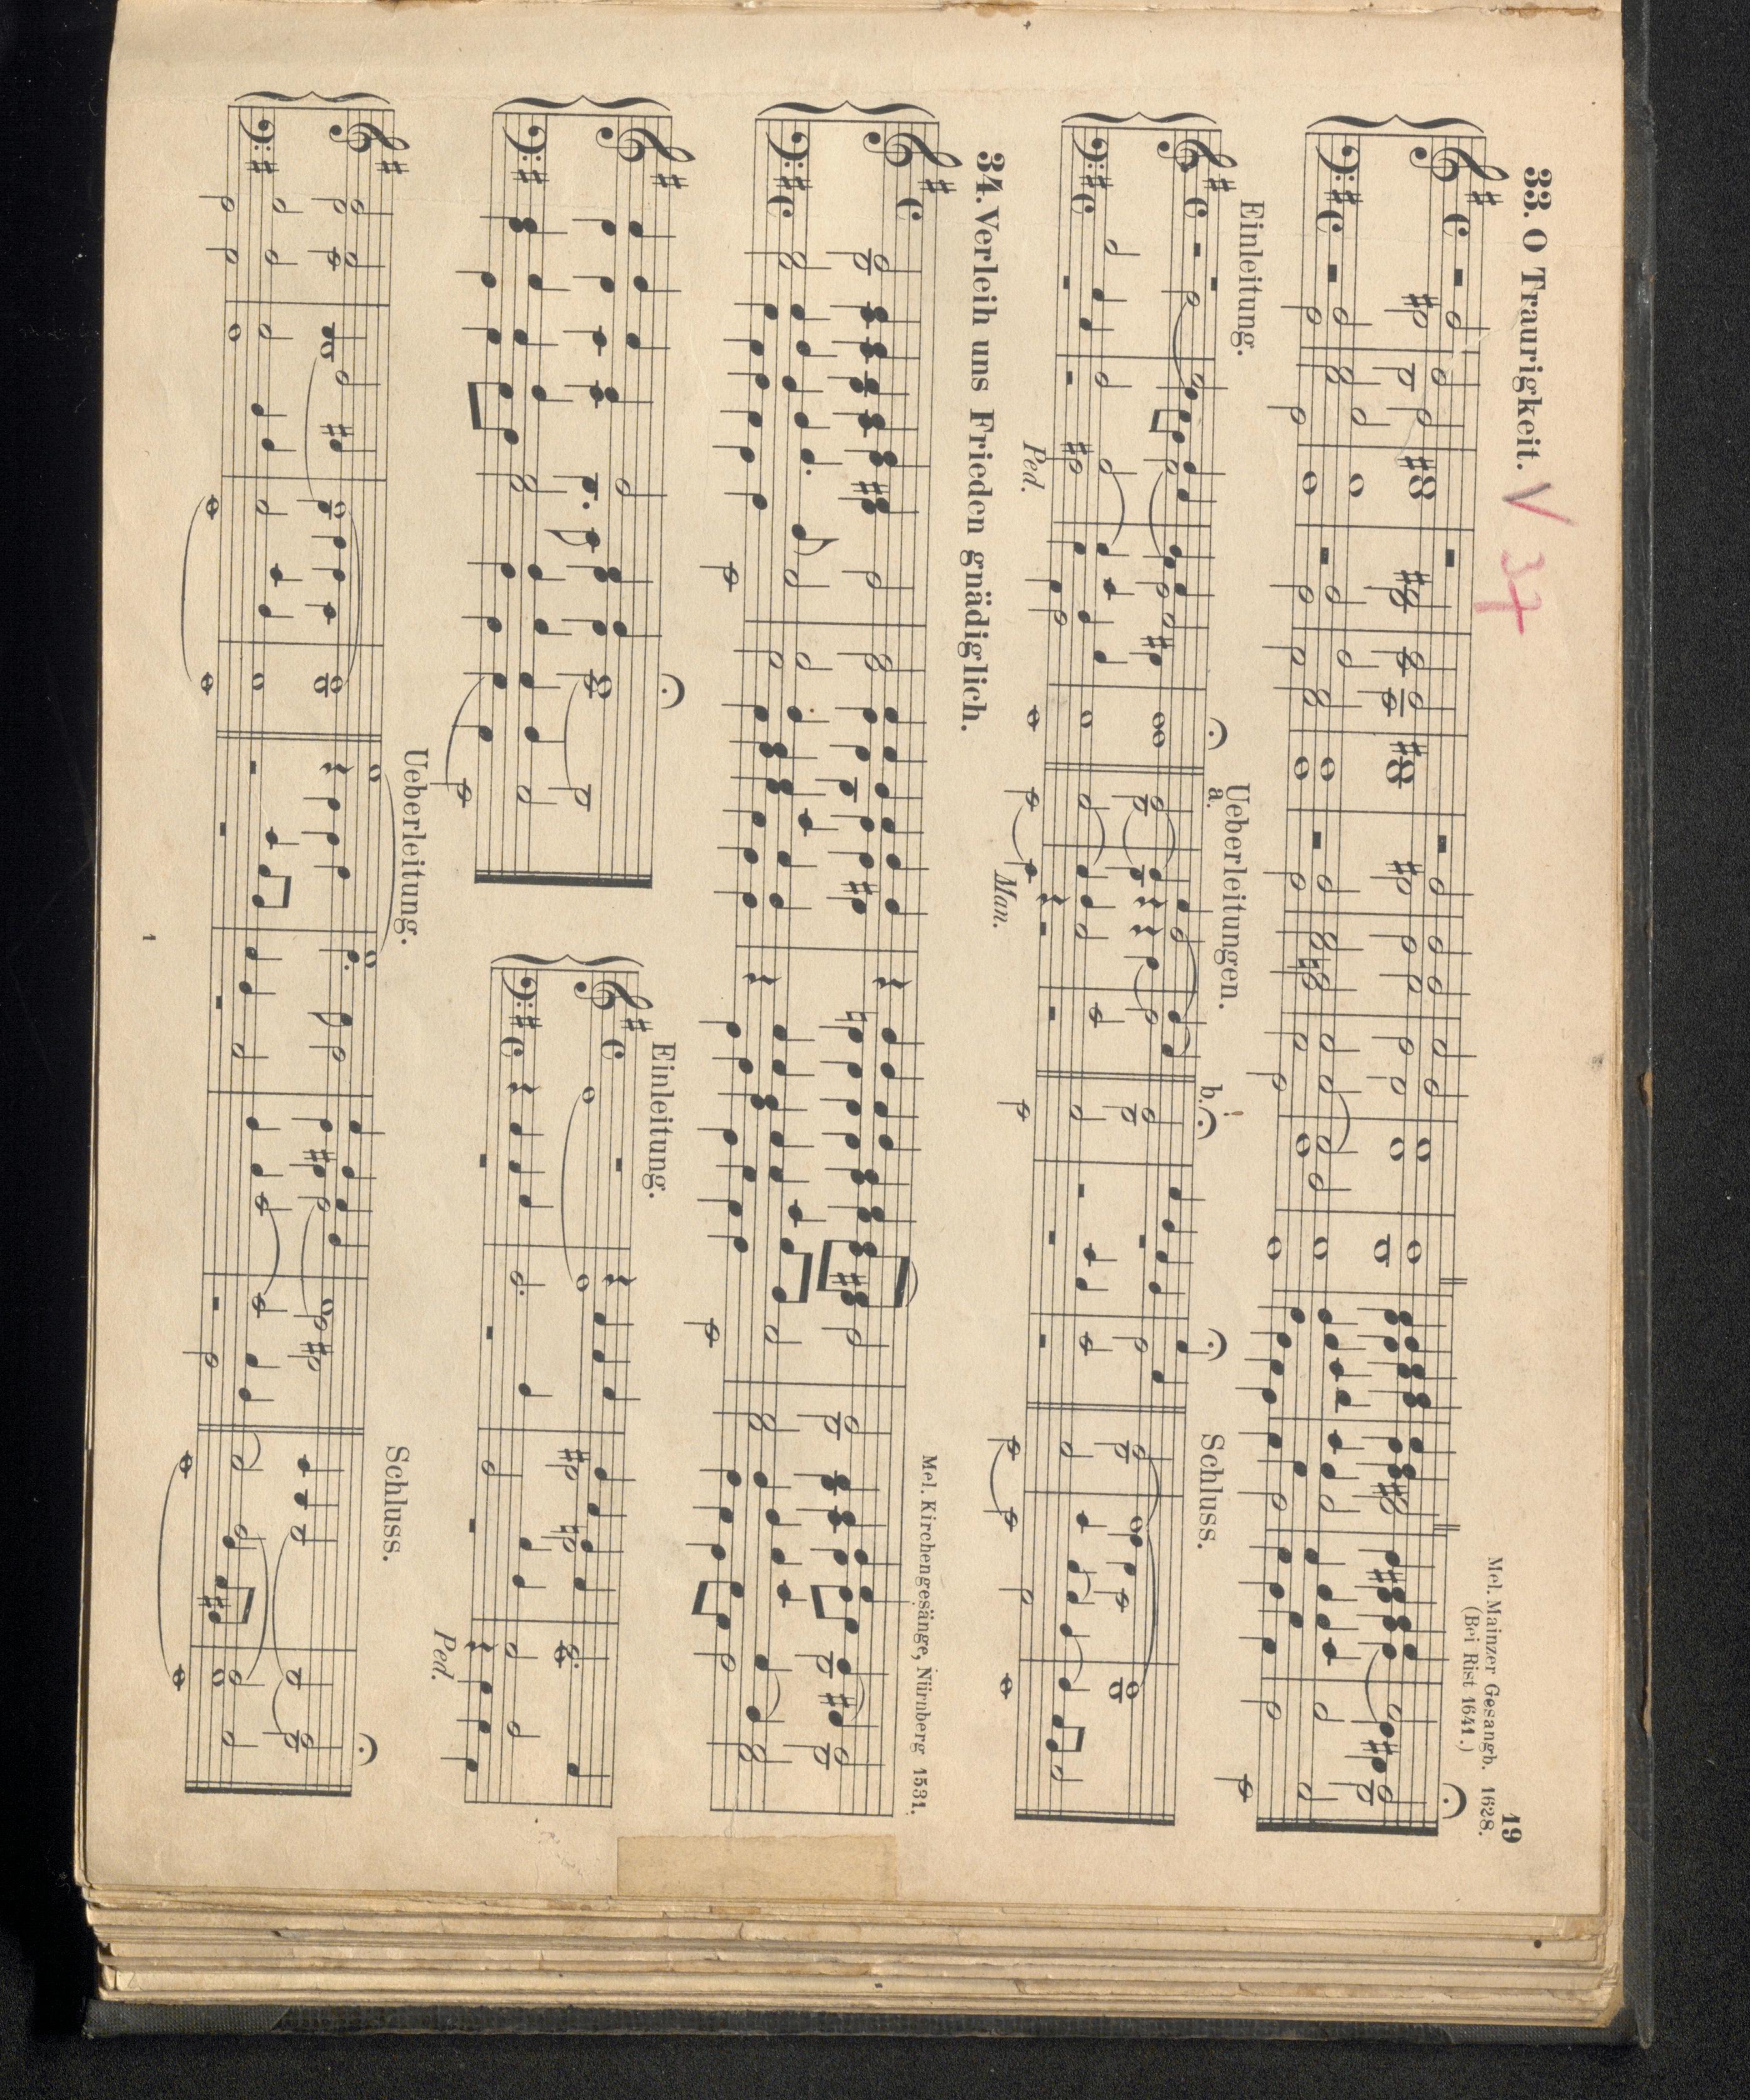 19
33. O Traurigkeit. V 37
Mel. Mainzer Gesangb. 1628.
(Bei Rist 1641.)
Einleitung.
Ueberleitungen.
a.
b.
Schluss.
Ped.
Man.
34. Verleih uns Frieden gnädiglich.
Mel. Kirchengesänge, Nürnberg 1531.
Einleitung.
Ped.
Ueberleitung.
Schluss.